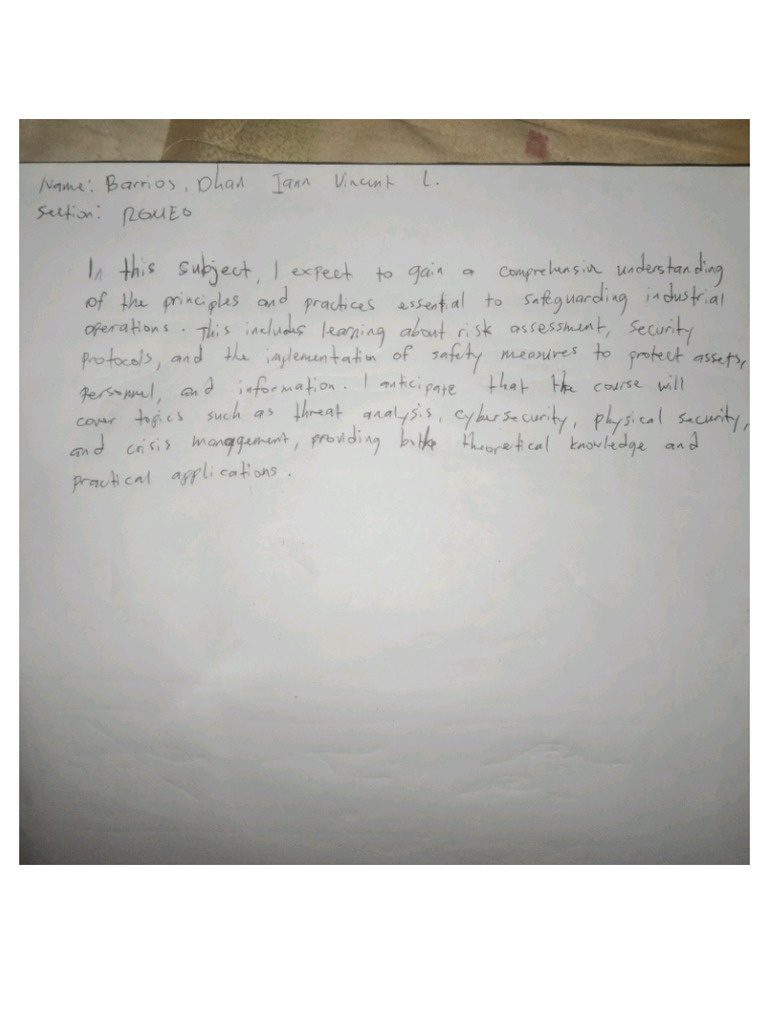 Name: Barrios, Dhan Iann Vincent L.
Section: ROMEO
In this subject, I expect to gain a comprehensive understanding
of the principles and practices essential to safeguarding industrial
operations. This includes learning about risk assessment, security
protocols, and the implementation of safety measures to protect assets,
personnel, and information. I anticipate that the course will
cover topics such as threat analysis, cybersecurity, physical security,
and crisis management, providing both theoretical knowledge and
practical applications.